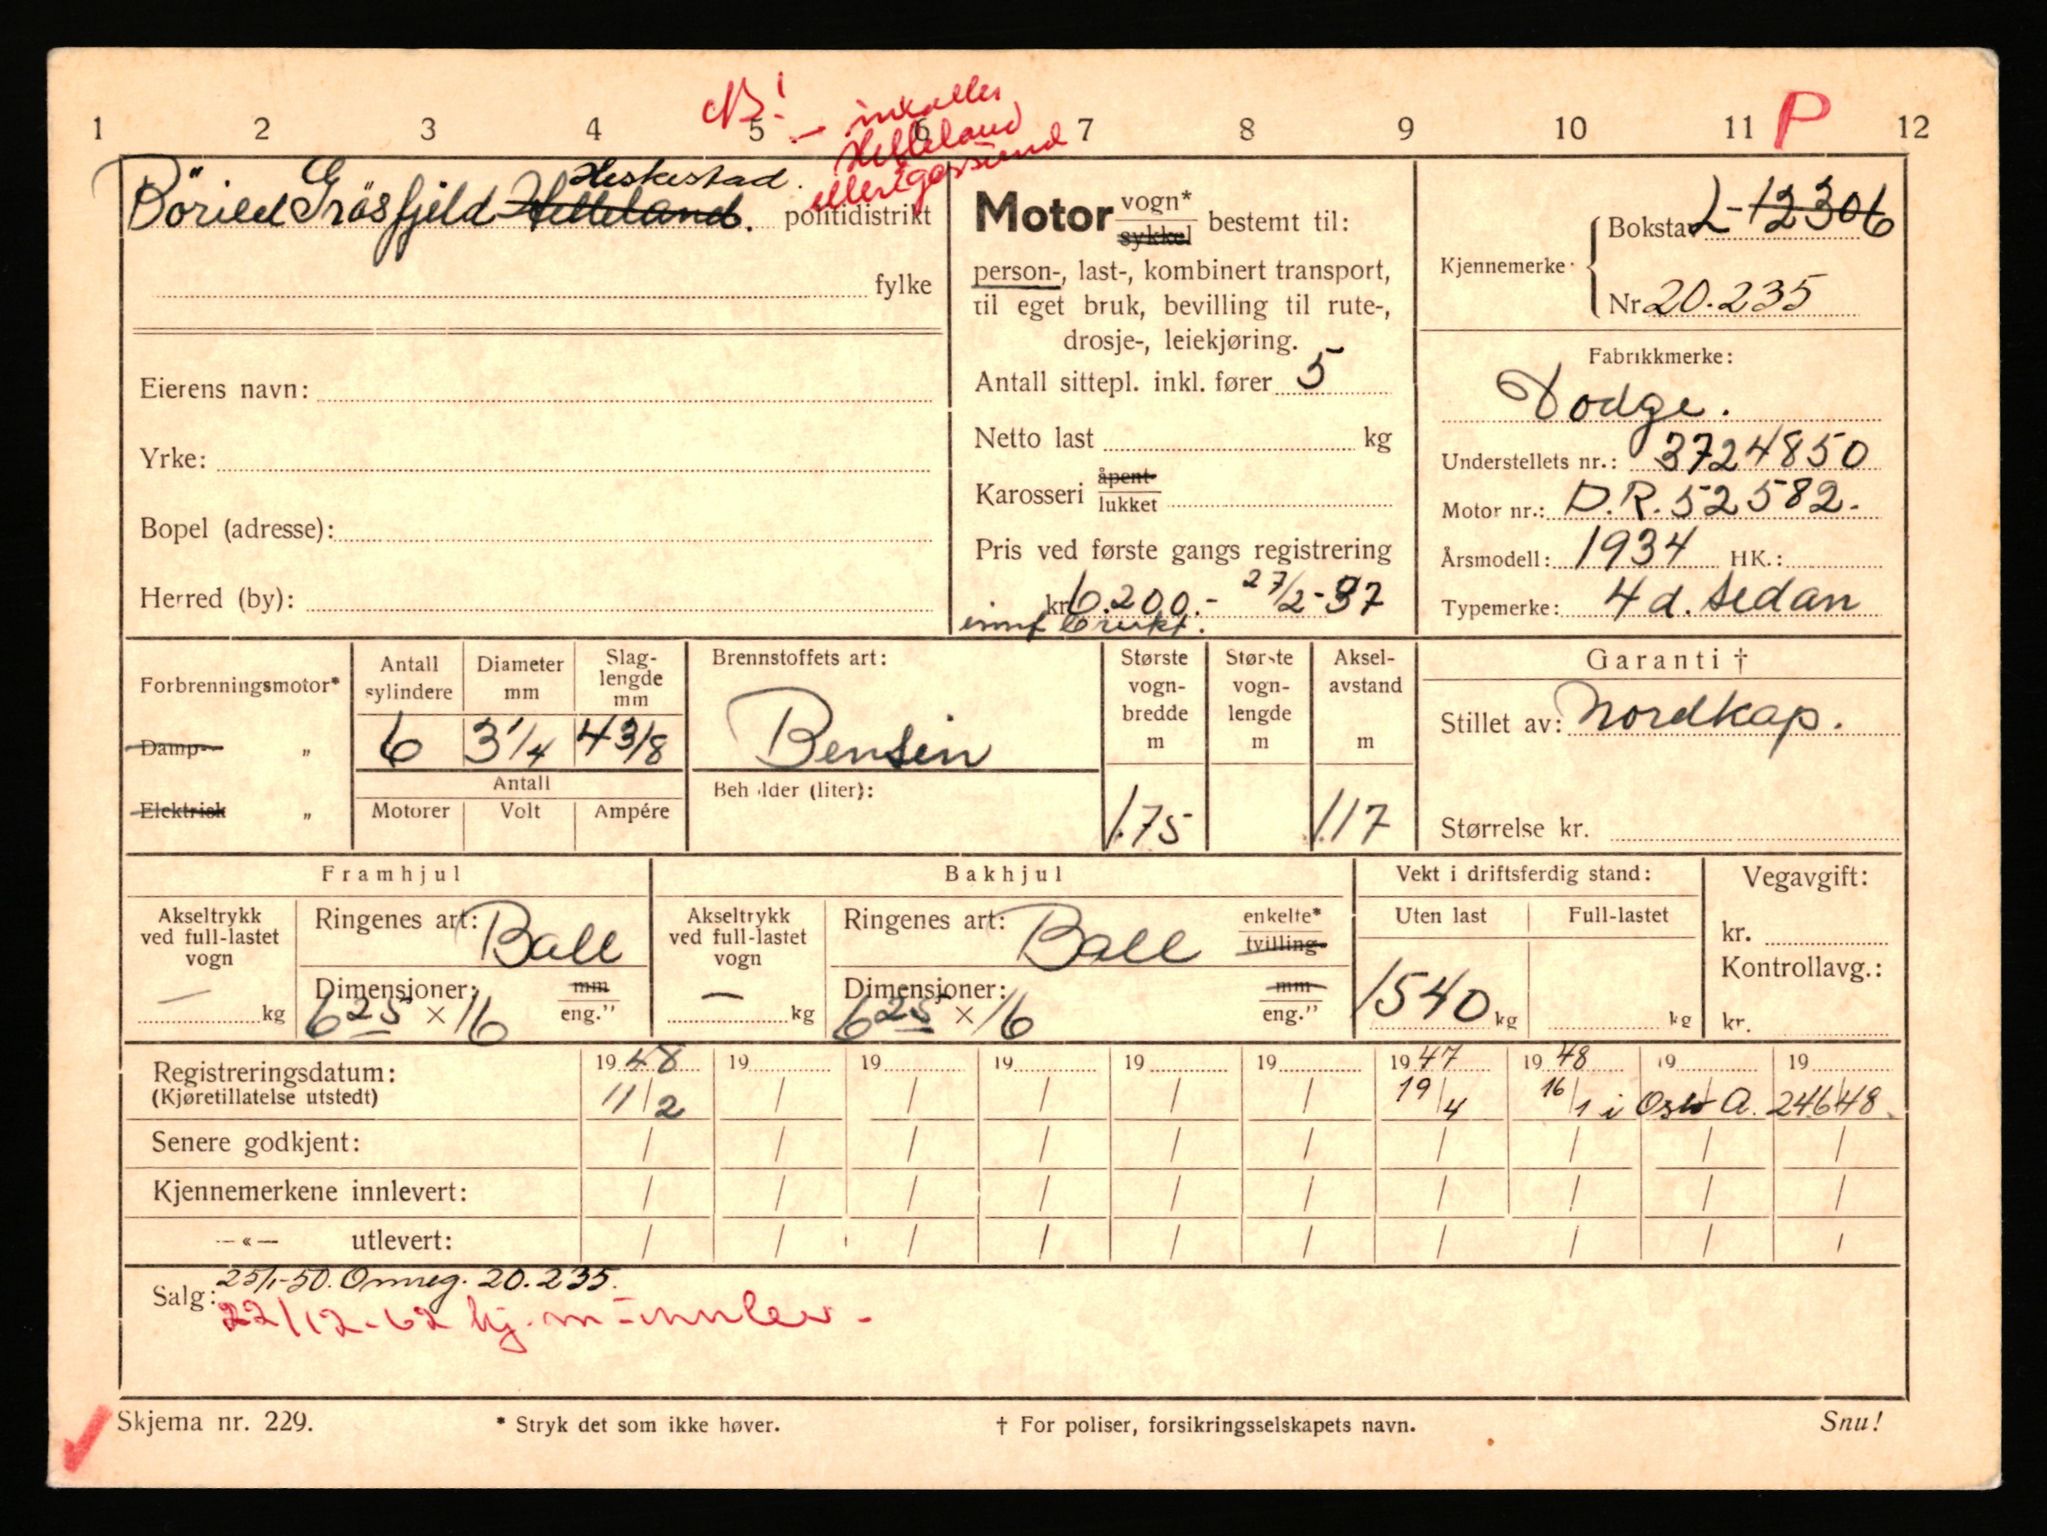 NB! – inkalles
Helleland
1 2 3 4 5 6 7 8 9 10 11 P 12
Heskestad.
Böried Gräsfjeld Helleland. politidistrikt
fylke
Eierens navn:
Yrke:
Bopel (adresse):
Herred (by):
Motor vogn* sykkel bestemt til:
person-, last-, kombinert transport,
til eget bruk, bevilling til rute-,
drosje-, leiekjøring.
Antall sittepl. inkl. fører 5
Netto last kg
Karosseri åpent lukket
Pris ved første gangs registrering
kr 6.200.- 27/2-37
innf brukt.
Kjennemerke
Bokstav L-12306
Nr 20.235
Fabrikkmerke:
Dodge.
Understellets nr.: 3724850
Motor nr.: D.R. 52582.
Årsmodell: 1934 HK.:
Typemerke: 4 d. Sedan
Forbrenningsmotor*
Damp- „
Elektrisk „
Antall sylindere
6
Diameter mm
3 1/4
Slag-
lengde
mm
4 3/8
Antall
Motorer Volt Ampére
Brennstoffets art:
Bensin
Beholder (liter):
Største
vogn-
bredde
m
1.75
Største
vogn-
lengde
m
Aksel-
avstand
m
1.17
Garanti †
Stillet av: Nordkap.
Størrelse kr.
Framhjul
Akseltrykk
ved full-lastet
vogn
— kg
Ringenes art: Ball
Dimensjoner: mm
6 25 × 16 eng.”
Bakhjul
Akseltrykk
ved full-lastet
vogn
— kg
Ringenes art: Ball enkelte* tvilling-
Dimensjoner: mm
6 25 × 16 eng.”
Vekt i driftsferdig stand:
Uten last Full-lastet
1540 kg kg
Vegavgift:
kr.
Kontrollavg.:
kr.
Registreringsdatum: 19 48 19 19 19 19 19 19 47 19 48 19 19
(Kjøretillatelse utstedt) 11/2 / / / / / 19/4 16/1 i Oslo A. 24648.
Senere godkjent: / / / / / / / / / /
Kjennemerkene innlevert: / / / / / / / / / /
—«— utlevert: / / / / / / / / / /
25/1-50. Omreg. 20.235.
Salg: 22/12-62 kj. m - innlev -
Skjema nr. 229. * Stryk det som ikke høver. † For poliser, forsikringsselskapets navn. Snu!